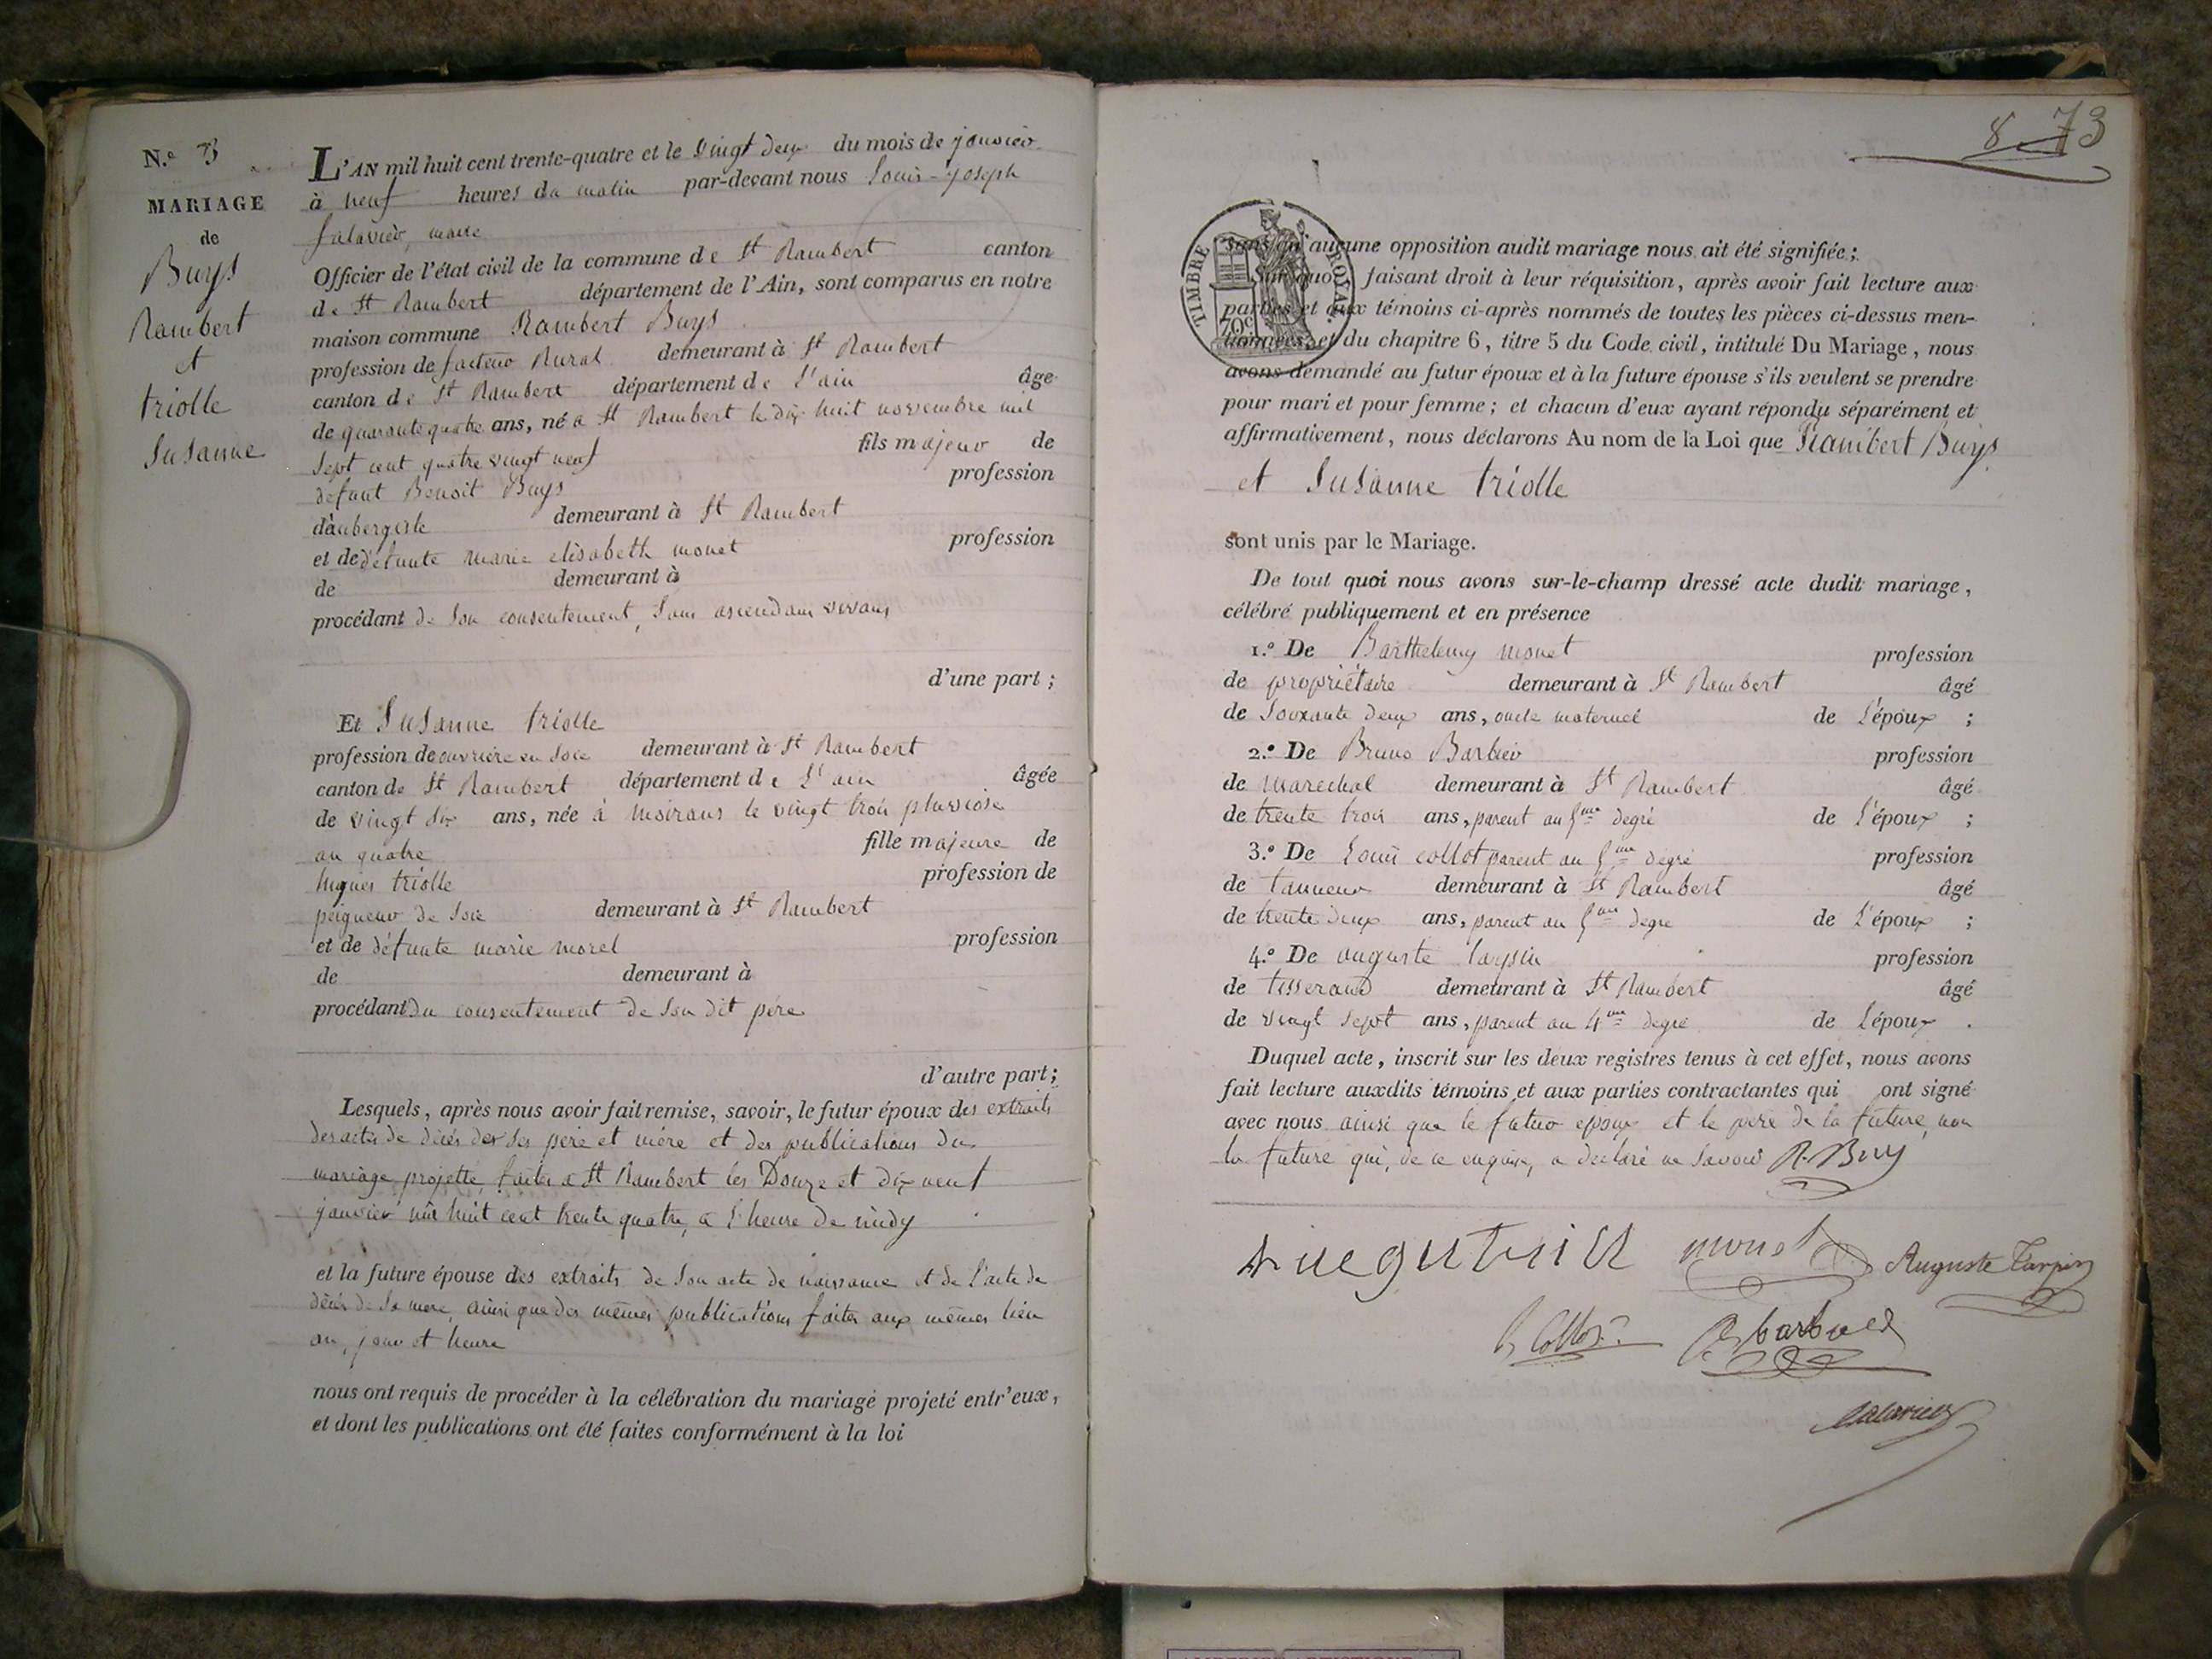 N.º 3
MARIAGE
de
Buys
Rambert
et
triolle
Susanne
L'AN mil huit cent trente-quatre et le vingt deux du mois de janvier
à neuf heures du matin par-devant nous Louis-Joseph
falavier, maire
Officier de l'état civil de la commune de St Rambert canton
de St Rambert département de l'Ain, sont comparus en notre
maison commune Rambert Buys
profession de facteur Rural demeurant à St Rambert
canton de St Rambert département de l'ain âgé
de quarante quatre ans, né à St Rambert le dix huit novembre mil
sept cent quatre vingt neuf fils majeur de
défunt Benoit Buys profession
d'aubergiste demeurant à St Rambert
et de défunte marie elisabeth monet profession
de demeurant à
procédant de son consentement, sans ascendans vivans
d'une part ;
Et Susanne triolle
profession de ouvrière en soie demeurant à St Rambert
canton de St Rambert département de l'ain âgée
de vingt dix ans, née à moirans le vingt trois pluviose
an quatre fille majeure de
hugues triolle profession de
peigneur de soie demeurant à St Rambert
et de défunte marie morel profession
de demeurant à
procédant du consentement de son dit père
d'autre part ;
Lesquels, après nous avoir fait remise, savoir, le futur époux des extraits
des actes de décès de ses père et mère et des publications du
mariage projetté, faites a St Rambert les Douze et dix neuf
janvier mil huit cent trente quatre, a l'heure de midy
et la future épouse des extraits de son acte de naissance et de l'acte de
décès de sa mere, ainsi que des mêmes publications faites aux mêmes lieu
an, jour et heure
nous ont requis de procéder à la célébration du mariage projeté entr'eux,
et dont les publications ont été faites conformément à la loi
8 73
TIMBRE ROYAL
70c
sans qu'aucune opposition audit mariage nous ait été signifiée ;
Sur quoi, faisant droit à leur réquisition, après avoir fait lecture aux
parties et aux témoins ci-après nommés de toutes les pièces ci-dessus men-
tionnées, et du chapitre 6, titre 5 du Code civil, intitulé Du Mariage, nous
avons demandé au futur époux et à la future épouse s'ils veulent se prendre
pour mari et pour femme ; et chacun d'eux ayant répondu séparément et
affirmativement, nous déclarons Au nom de la Loi que Rambert Buys
et Susanne triolle
sont unis par le Mariage.
De tout quoi nous avons sur-le-champ dressé acte dudit mariage,
célébré publiquement et en présence
1.º De Barthelemy monet profession
de propriétaire demeurant à St Rambert âgé
de soixante deux ans, oncle maternel de l'époux ;
2.º De Bruno Barbier profession
de marechal demeurant à St Rambert âgé
de trente trois ans, parent au 5me degré de l'époux ;
3.º De Louis collot parent au 5me degré profession
de tanneur demeurant à St Rambert âgé
de trente deux ans, parent au 5me degré de l'époux ;
4.º De auguste profession
de tisserand demeurant à St Rambert âgé
de vingt sept ans, parent au 4me degré de l'époux .
Duquel acte, inscrit sur les deux registres tenus à cet effet, nous avons
fait lecture auxdits témoins et aux parties contractantes qui ont signé
avec nous ainsi que le futur époux et le père de la future, non
la future qui, de ce enquise, a déclaré ne savoir R. Buy
monet Auguste
Collot barbier